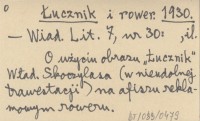 o Łucznik i rower. 1930.
— Wiad. Lit. 7, nr 30: , il.
O użyciu obrazu „Łucznik"
Wład. Skoczylasa (w nieudolnej
trawestacji) na afiszu rekla-
mowym roweru.